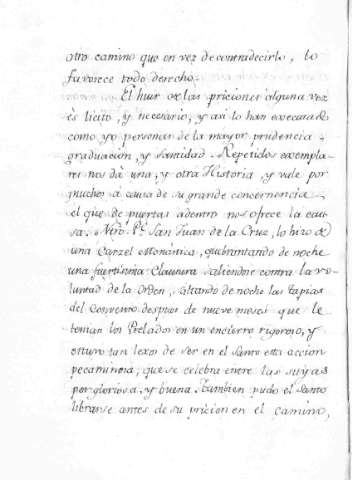 otro camino que en vez de contradecirlo, lo
favorece todo derecho.
El huir de las priciones alguna vez
ès licito, y necesario, y asi lo han executado
como yo personas de la mayor prudencia
graduacion, y santidad. Repetidos exempla-
res nos dà una, y otra Historia, y vale por
muchos à causa de su grande concernencia
el que de puertas adentro nos ofrece la cau-
sa. Ntro. Pe. San Juan de la Cruz, lo hizo de
una Carzel Monastica, quebrantando de noche
una fuertisima Clausura saliendose contra la vo-
luntad de la Orden, saltando de noche las tapias
del Convento despues de nueve meses que le
tenian los Prelados en un encierro rigoroso, y
estuvo tan lexos de ser en el Santo esta accion
pecaminosa, que se celebra entre las suyas
por gloriosa, y buena. Tambien pudo el Santo
librarse antes de su pricion en el camino,